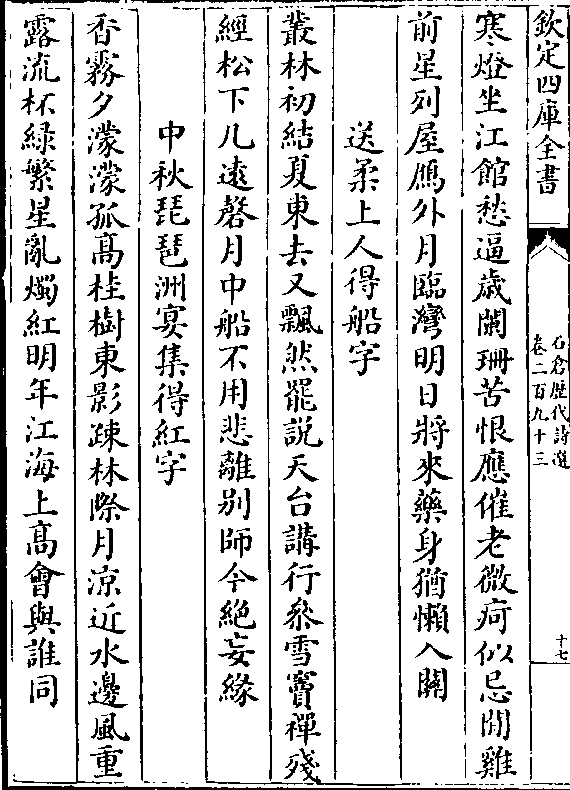 欽定四庫全書
石倉歴代詩選
卷二百九十三
十七
寒燈坐江館愁逼歳闌珊苦恨應催老微疴似忌閒雞
前星列屋鴈外月臨灣明日將來藥身猶懶入闗
送柔上人得船字
叢林初結夏東去又飄然罷説天台講行叅雪竇禪殘
經松下几逺磬月中船不用悲離别師今絶妄緣
中秋琵琶洲宴集得紅字
香霧夕濛濛孤髙桂樹東影疎林際月涼近水邊風重
露流杯緑繁星亂燭紅明年江海上髙會與誰同